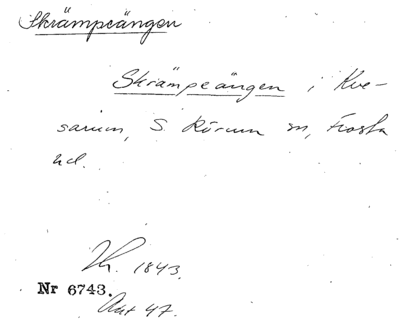 Skrämpeängen
Skrämpeängen i Kve-
sarum, S. Rörum sn, Frosta
hd.
1843.
Nr 6743.
Akt 47.